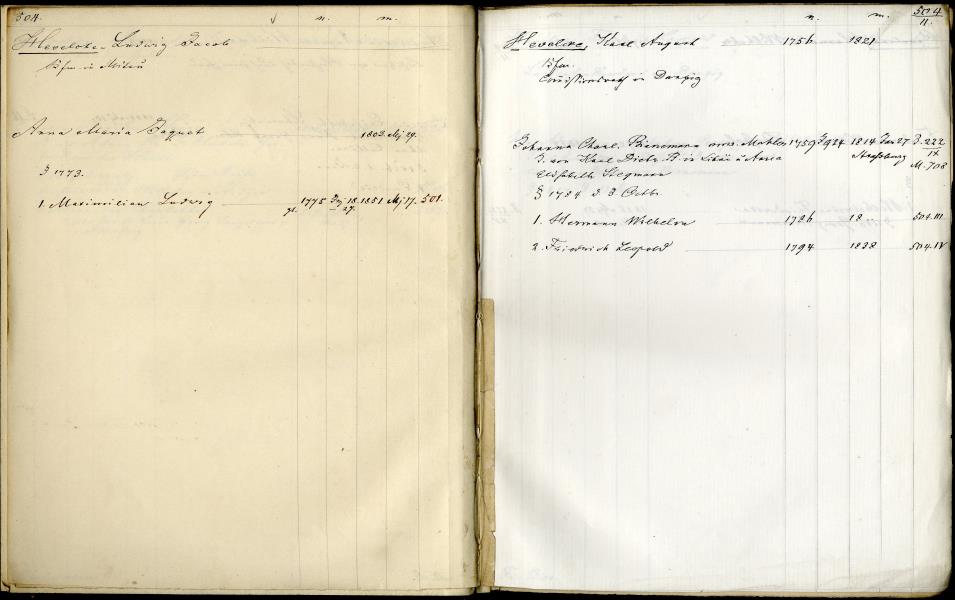 504. n. m.
Hevelcke, Ludwig Jacob
Kfm in Mitau
Anna Maria Jaquet 1803 Mj 29.
§ 1773.
1. Maximilian Ludwig 1775 18. 1851 Mj 17. 501.
27.
n. m. 504
II.
Hevelcke, Karl August 1756 1821
Kfm.
Comissionsrath in Danzig
Johanna Charl. Bienemann 1759 24 1814 Jan 27 222
IX
J. von Karl Dietr. B in Libau u Anna
M. 708
Elisabeth Stegmann
§ 1784 d 3 Octbr
1. Hermann Wilhelm 1786 18 504.III.
2. Friedrich Leopold 1794 1838 504.IV